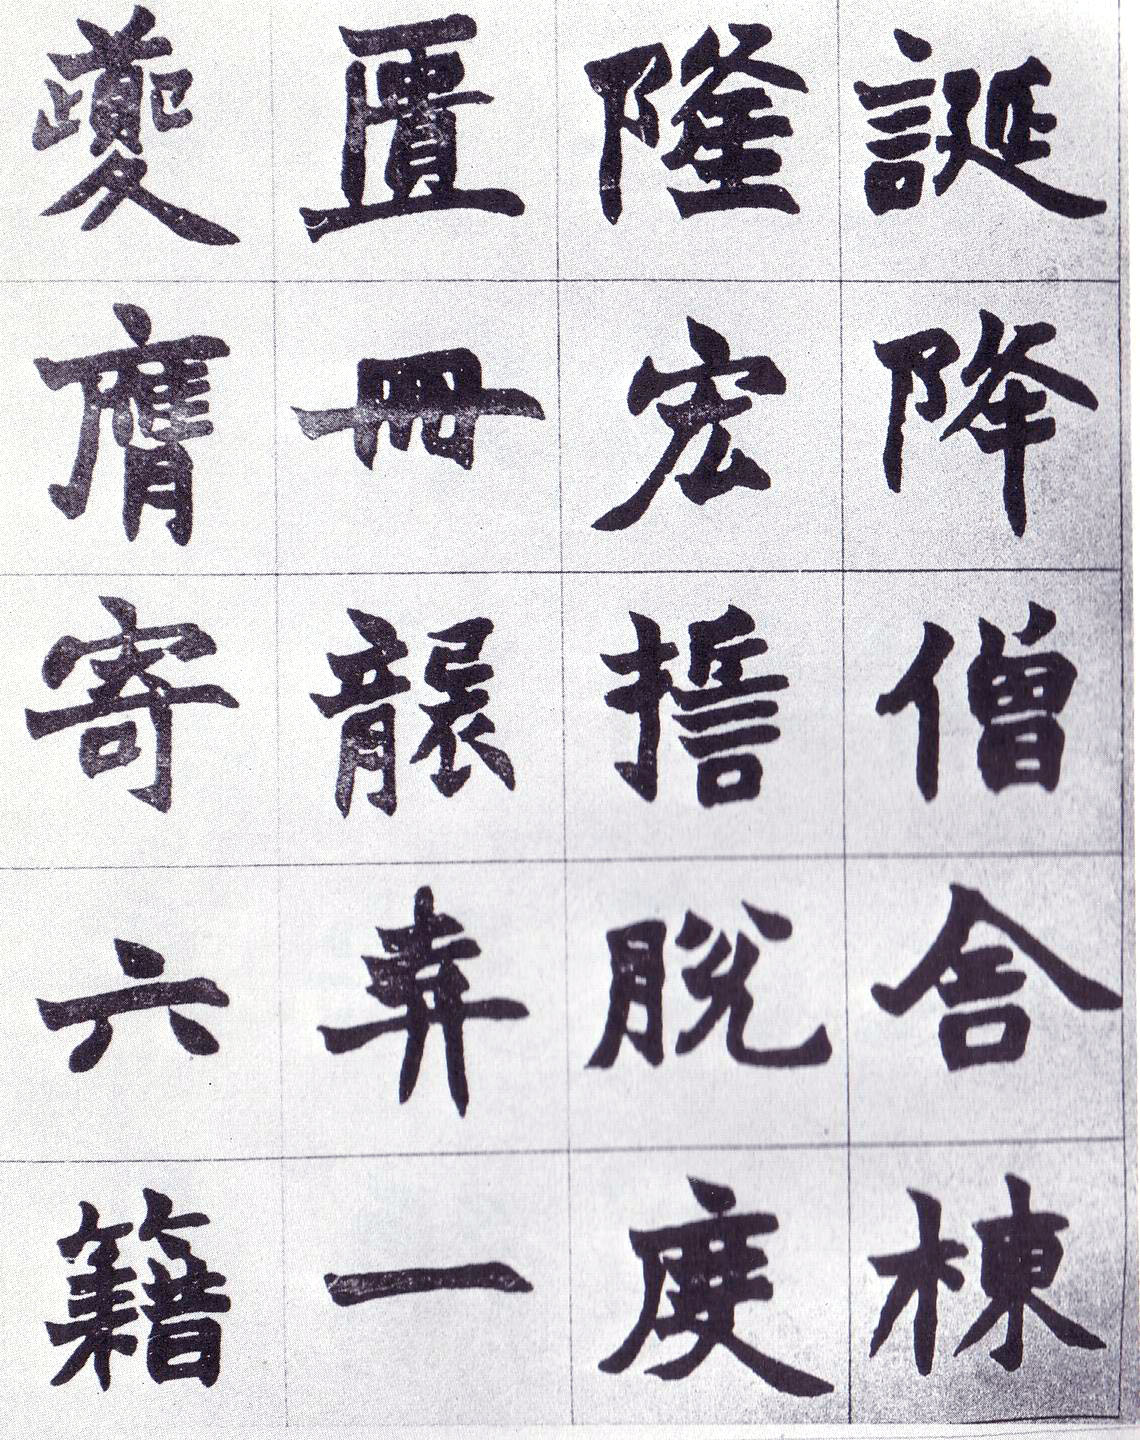 誕降僧舍棟
隆宏誓脫度
匱冊一
夔膺寄六籍